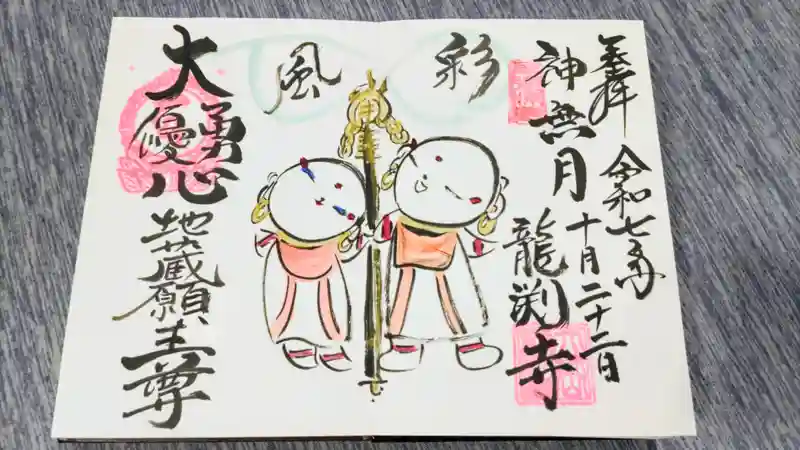 奉拝
令和七年
十月二十二日
神無月
龍渕寺
彩
風
大勇心
優
地蔵願主尊